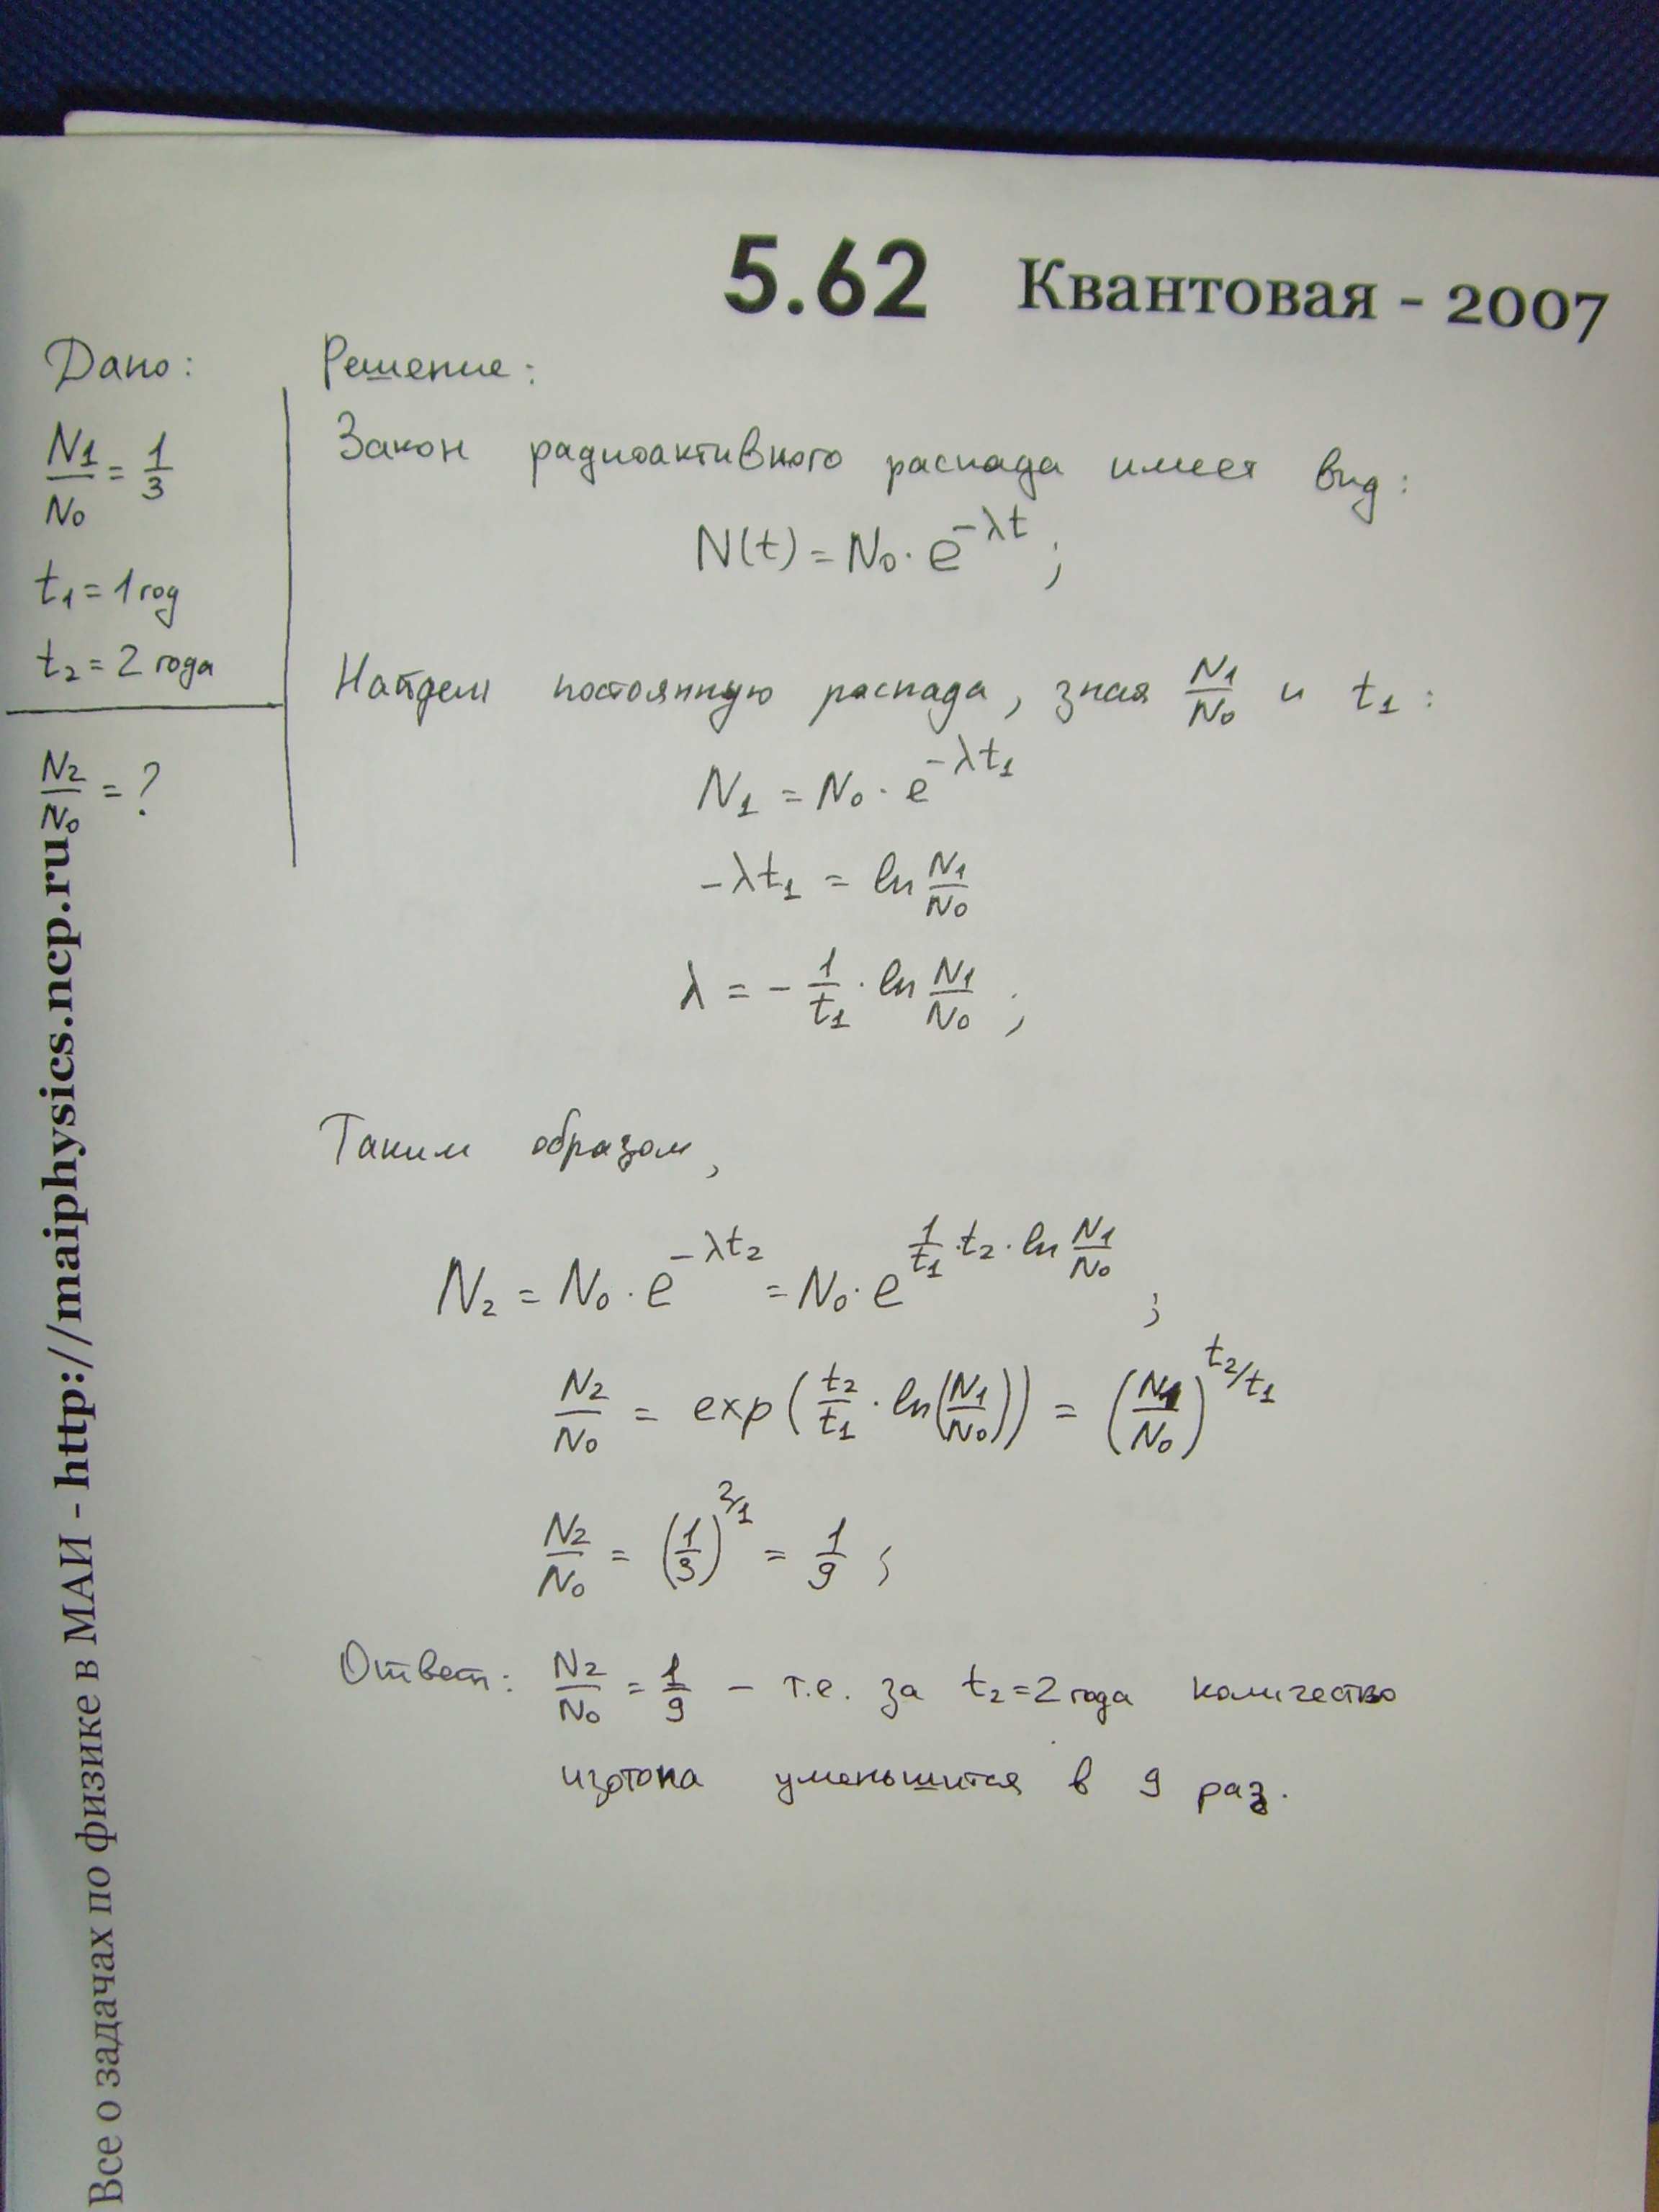 5.62 Квантовая - 2007
Дано:
N1/N0 = 1/3
t1 = 1 год
t2 = 2 года
N2/N0 = ?
Решение:
Закон радиоактивного распада имеет вид:
N(t) = N0 · e^(-λt);
Найдем постоянную распада, зная N1/N0 и t1:
N1 = N0 · e^(-λt1)
-λt1 = ln N1/N0
λ = - 1/t1 · ln N1/N0 ;
Таким образом,
N2 = N0 · e^(-λt2) = N0 · e^(1/t1 · t2 · ln N1/N0) ;
N2/N0 = exp(t2/t1 · ln(N1/N0)) = (N1/N0)^(t2/t1)
N2/N0 = (1/3)^(2/1) = 1/9 ;
Ответ: N2/N0 = 1/9 – т.е. за t2 = 2 года количество
изотопа уменьшится в 9 раз.
Все о задачах по физике в МАИ - http://maiphysics.ncp.ru